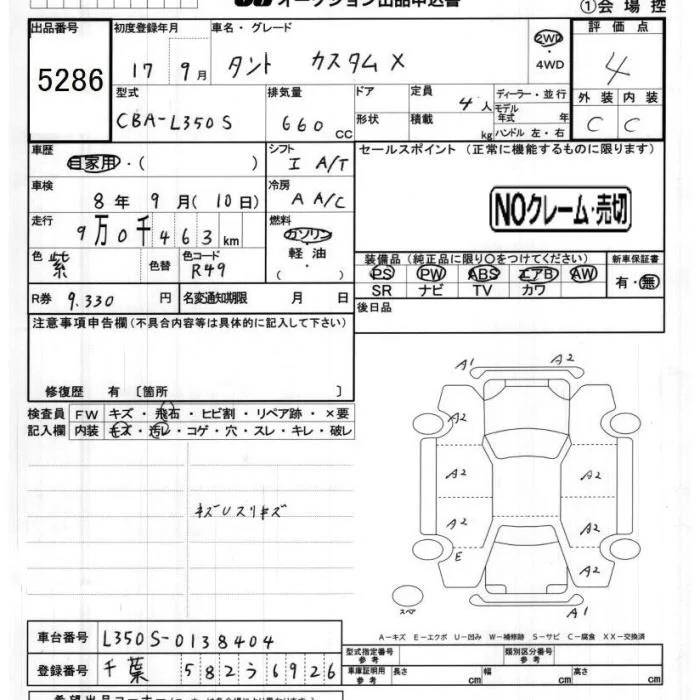 オークション出品申込書
①会場控
出品番号 5286
初度登録年月 17 9月
車名・グレード タント カスタムX
2WD・4WD
評価点 4
外装 C 内装 C
型式 CBA-L350S
排気量 660 CC
ドア 形状
定員 4人
積載 kg
ディーラー・並行
モデル年式 年
ハンドル 左・右
車歴 自家用・( )
シフト I A/T
車検 8年 9月(10日)
冷房 A A/C
走行 9万0千463km
燃料 ガソリン 軽油 ( ・ )
色 紫 色替 色コード R49
R券 9.330 円
名変通知期限 月 日
セールスポイント (正常に機能するものに限ります)
NOクレーム・売切
装備品(純正品に限り○をつけてください)
PS PW ABS エアB AW
SR ナビ TV カワ
新車保証書 有・無
後日品
注意事項申告欄(不具合内容等は具体的に記入して下さい)
修復歴 有 〔箇所 〕
検査員記入欄
FW キズ・飛石・ヒビ割・リペア跡・×要
内装 キズ・汚レ・コゲ・穴・スレ・キレ・破レ
キズUスリキズ
A1 A2
A2
A2 A2
A2 A2
E A2
スペア A1
A-キズ E-エクボ U-凹み W-補修跡 S-サビ C-腐食 XX-交換済
車台番号 L350S-0138404
登録番号 千葉 582う6926
型式指定番号 参考
類別区分番号 参考
車庫証明用 参考 長さ cm 幅 cm 高さ cm
希望出品コーナー